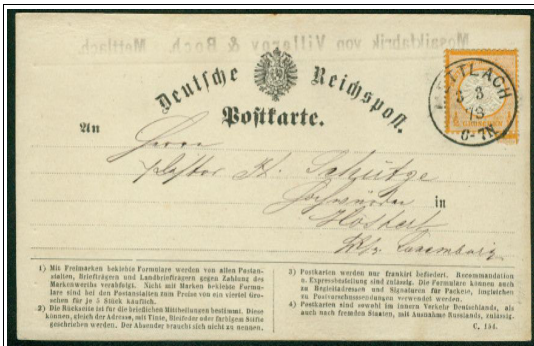 Mosaikfabrik von Villeroy & Boch. Mettlach.
Deutsche Reichspost.
Postkarte.
METTLACH
3 3
73
6-7N
An
Herrn
Pastor H. Schütze
Hochwürden
in
Hostert
Luxemburg
1) Mit Freimarken beklebte Formulare werden von allen Postan-
stalten, Briefträgern und Landbriefträgern gegen Zahlung des
Markenwerths verabfolgt. Nicht mit Marken beklebte Formu-
lare sind bei den Postanstalten zum Preise von ein viertel Gro-
schen für je 5 Stück käuflich.
2) Die Rückseite ist für die brieflichen Mittheilungen bestimmt. Diese
können, gleich der Adresse, mit Tinte, Bleifeder oder farbigem Stifte
geschrieben werden. Der Absender braucht sich nicht zu nennen.
3) Postkarten werden nur frankirt befördert. Recommandation
u. Expressbestellung sind zulässig. Die Formulare können auch
zu Begleitadressen und Signaturen für Packete, imgleichen
zu Postvorschusssendungen verwendet werden.
4) Postkarten sind sowohl im innern Verkehr Deutschlands, als
auch nach fremden Staaten, mit Ausnahme Russlands, zulässig.
C. 154.